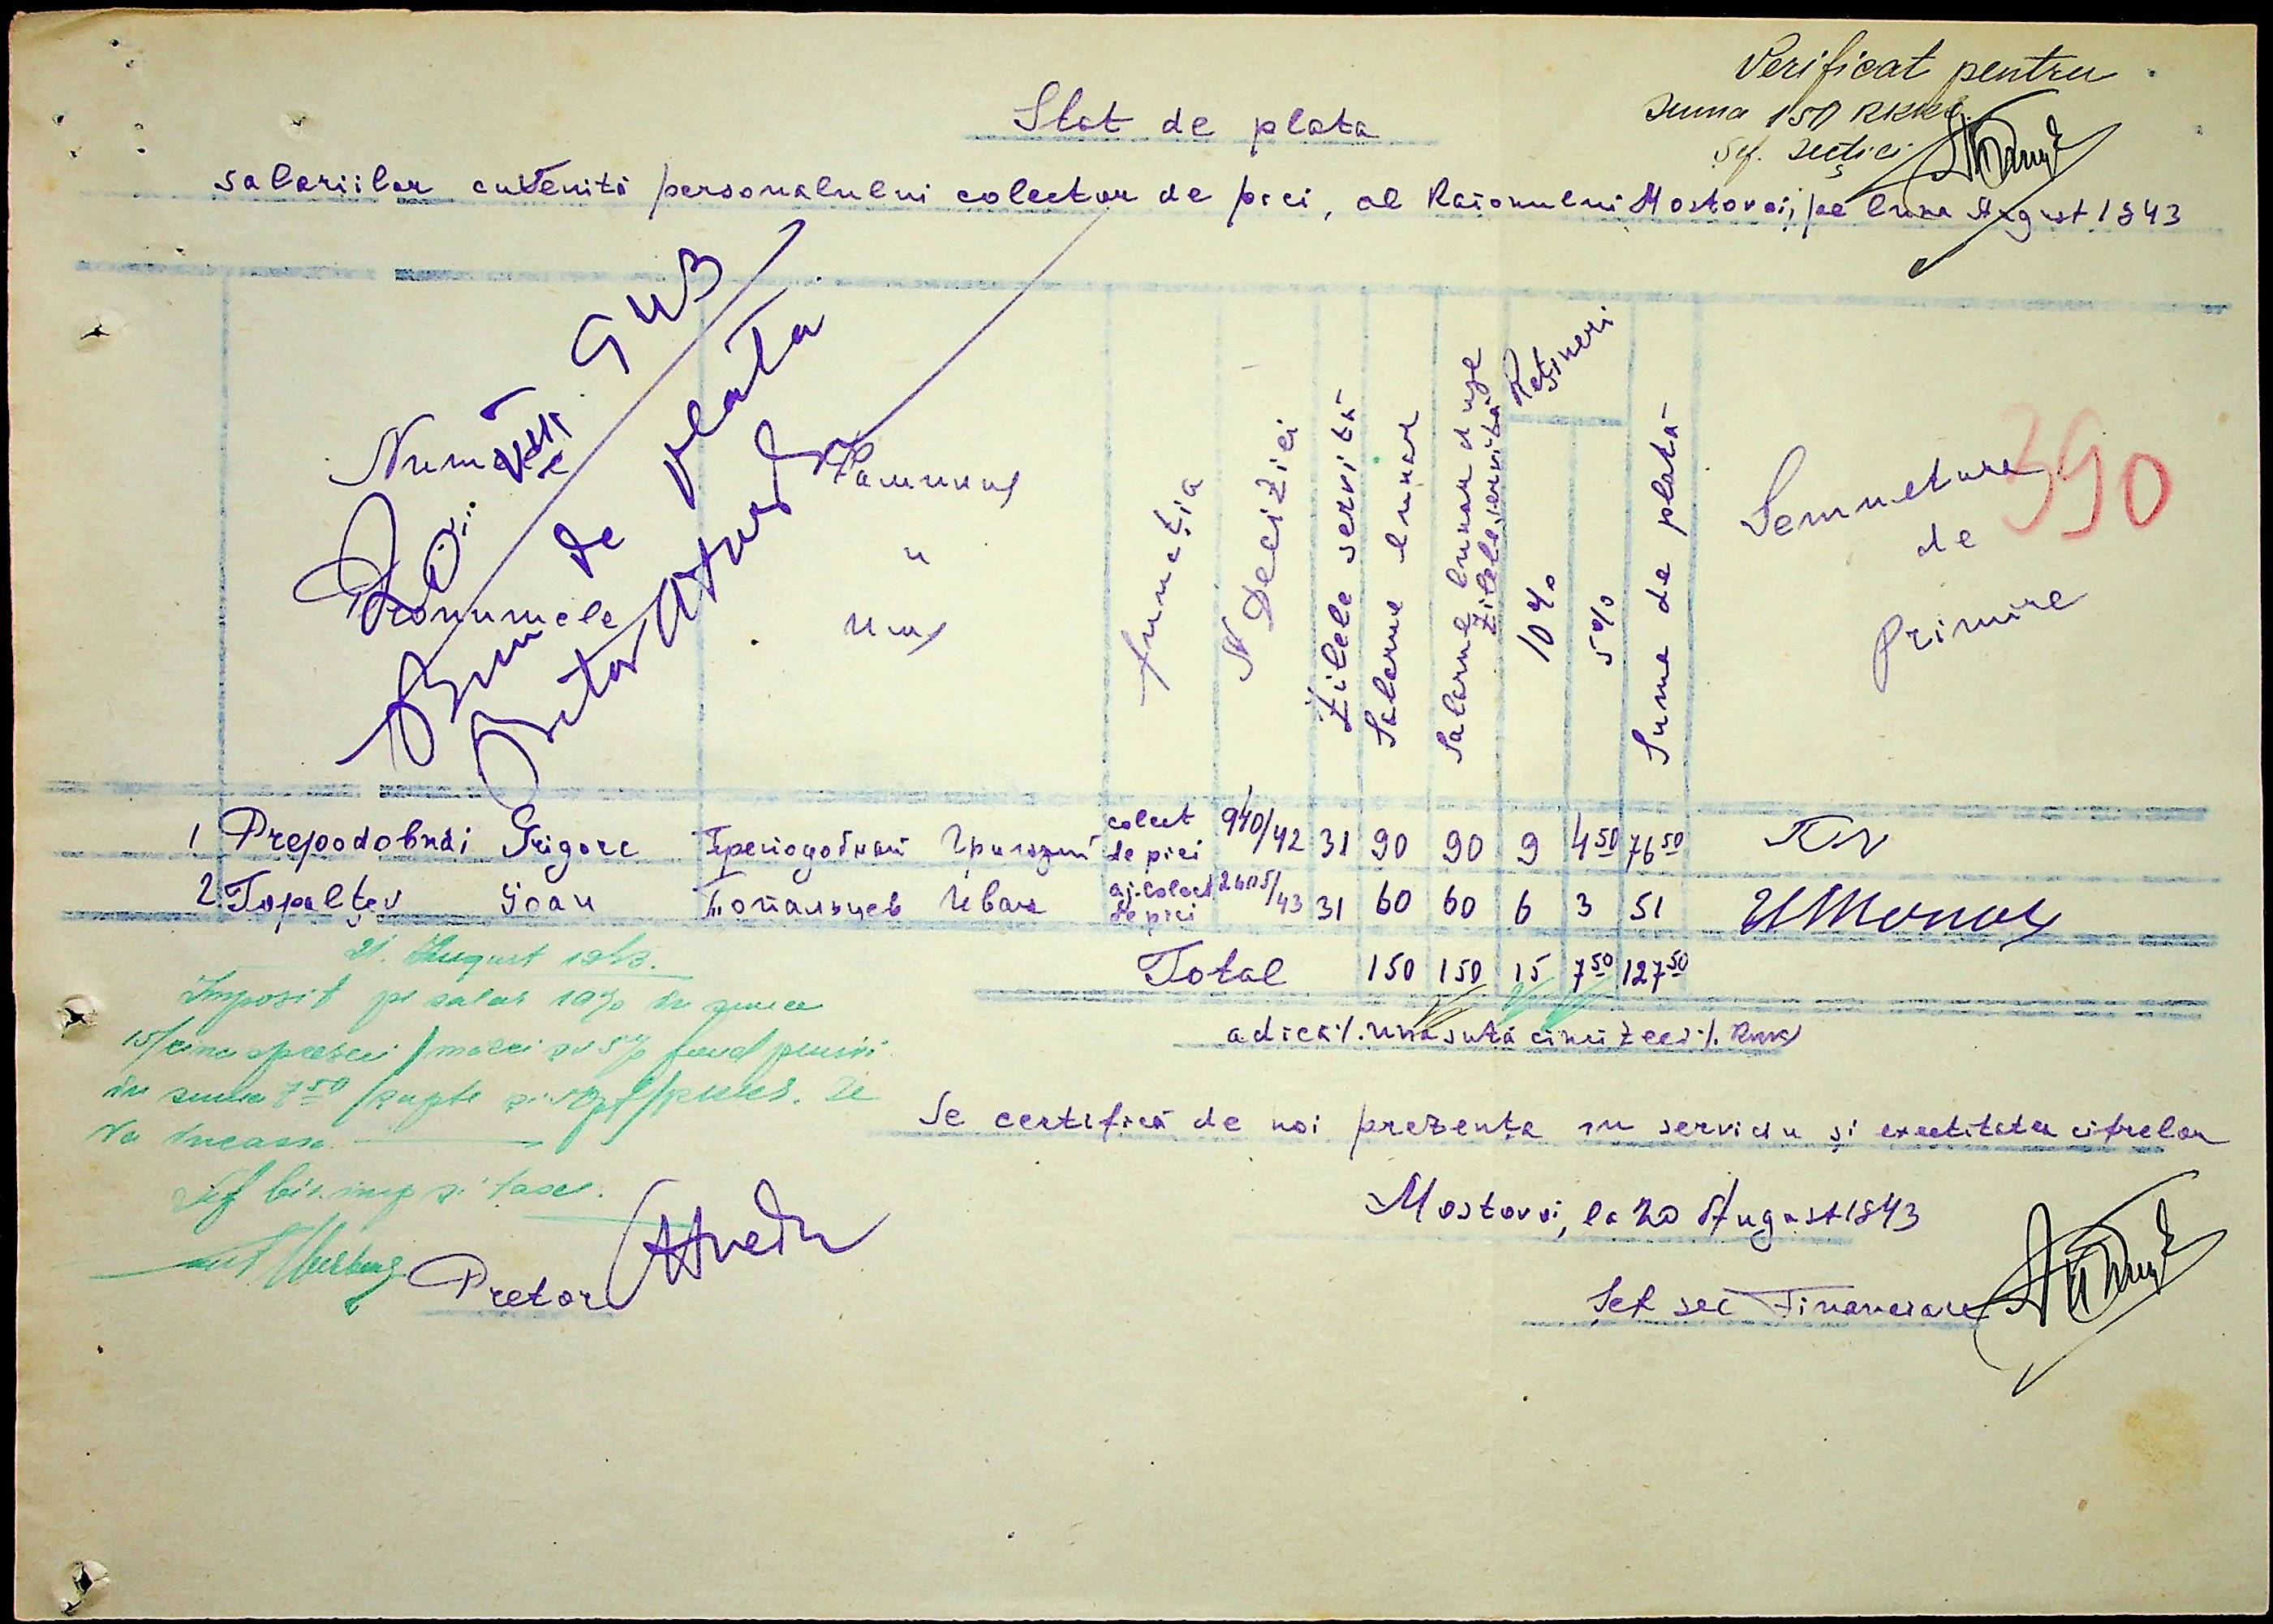 Verificat pentru
suma 150 RKKS
Șef. secției
Stat de plata
salariilor cuvenită personalului colector de piei, al Raionului Mostovoi, pe luna August 1943
943
Bun de plata
Pretor
390
Numele
Pronumele
Фамилия
и
Имя
Funcția
N Deciziei
Zilele servită
Salarul lunar
Salarul lunar după zilele servită
Rețineri
10%
5%
Suma de plată
Semnetura
de
primire
1 Prepodobnâi Grigore Преподобный Григорий colect de piei 940/42 31 90 90 9 4 50 76 50
2. Topalțev Ioan Топальцев Иван aj. colect de piei 2605/43 31 60 60 6 3 51
Total 150 150 15 7 50 127 50
adică %. Una sută cinci zeci %. RKKS
21. August 1943.
Impozit pe salar 10% în suma
15/cinci sprezeci/ mărci și 5% fond pensii
în suma 7 50 /șapte și 50 pf/ RKKS. Se
va încasa.
Șef bir. imp și taxe.
Se certifică de noi prezența in serviciu și exactitatea cifrelor
Mostovoi, la 20 August 1943
Pretor
Șef sec Financiare